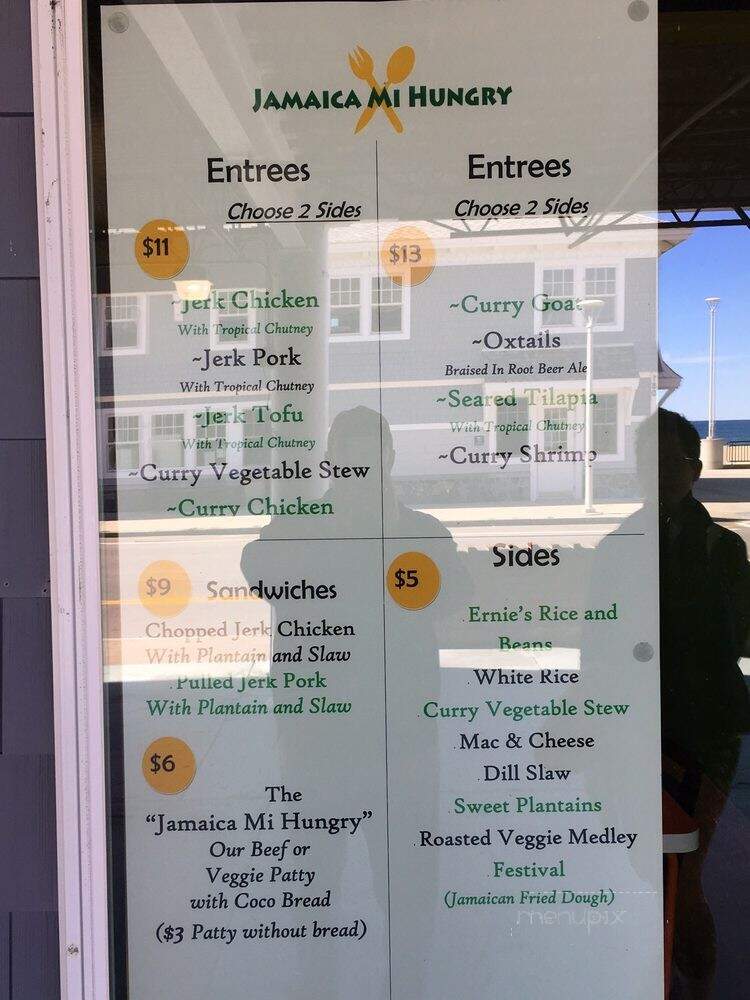 JAMAICA MI HUNGRY
Entrees
Choose 2 Sides
$11
~Jerk Chicken
With Tropical Chutney
~Jerk Pork
With Tropical Chutney
~Jerk Tofu
With Tropical Chutney
~Curry Vegetable Stew
~Curry Chicken
Entrees
Choose 2 Sides
$13
~Curry Goat
~Oxtails
Braised In Root Beer Ale
~Seared Tilapia
With Tropical Chutney
~Curry Shrimp
$9 Sandwiches
Chopped Jerk Chicken
With Plantain and Slaw
Pulled Jerk Pork
With Plantain and Slaw
$6
The
"Jamaica Mi Hungry"
Our Beef or
Veggie Patty
with Coco Bread
($3 Patty without bread)
Sides
$5
Ernie's Rice and
Beans
White Rice
Curry Vegetable Stew
Mac & Cheese
Dill Slaw
Sweet Plantains
Roasted Veggie Medley
Festival
(Jamaican Fried Dough)
menupix